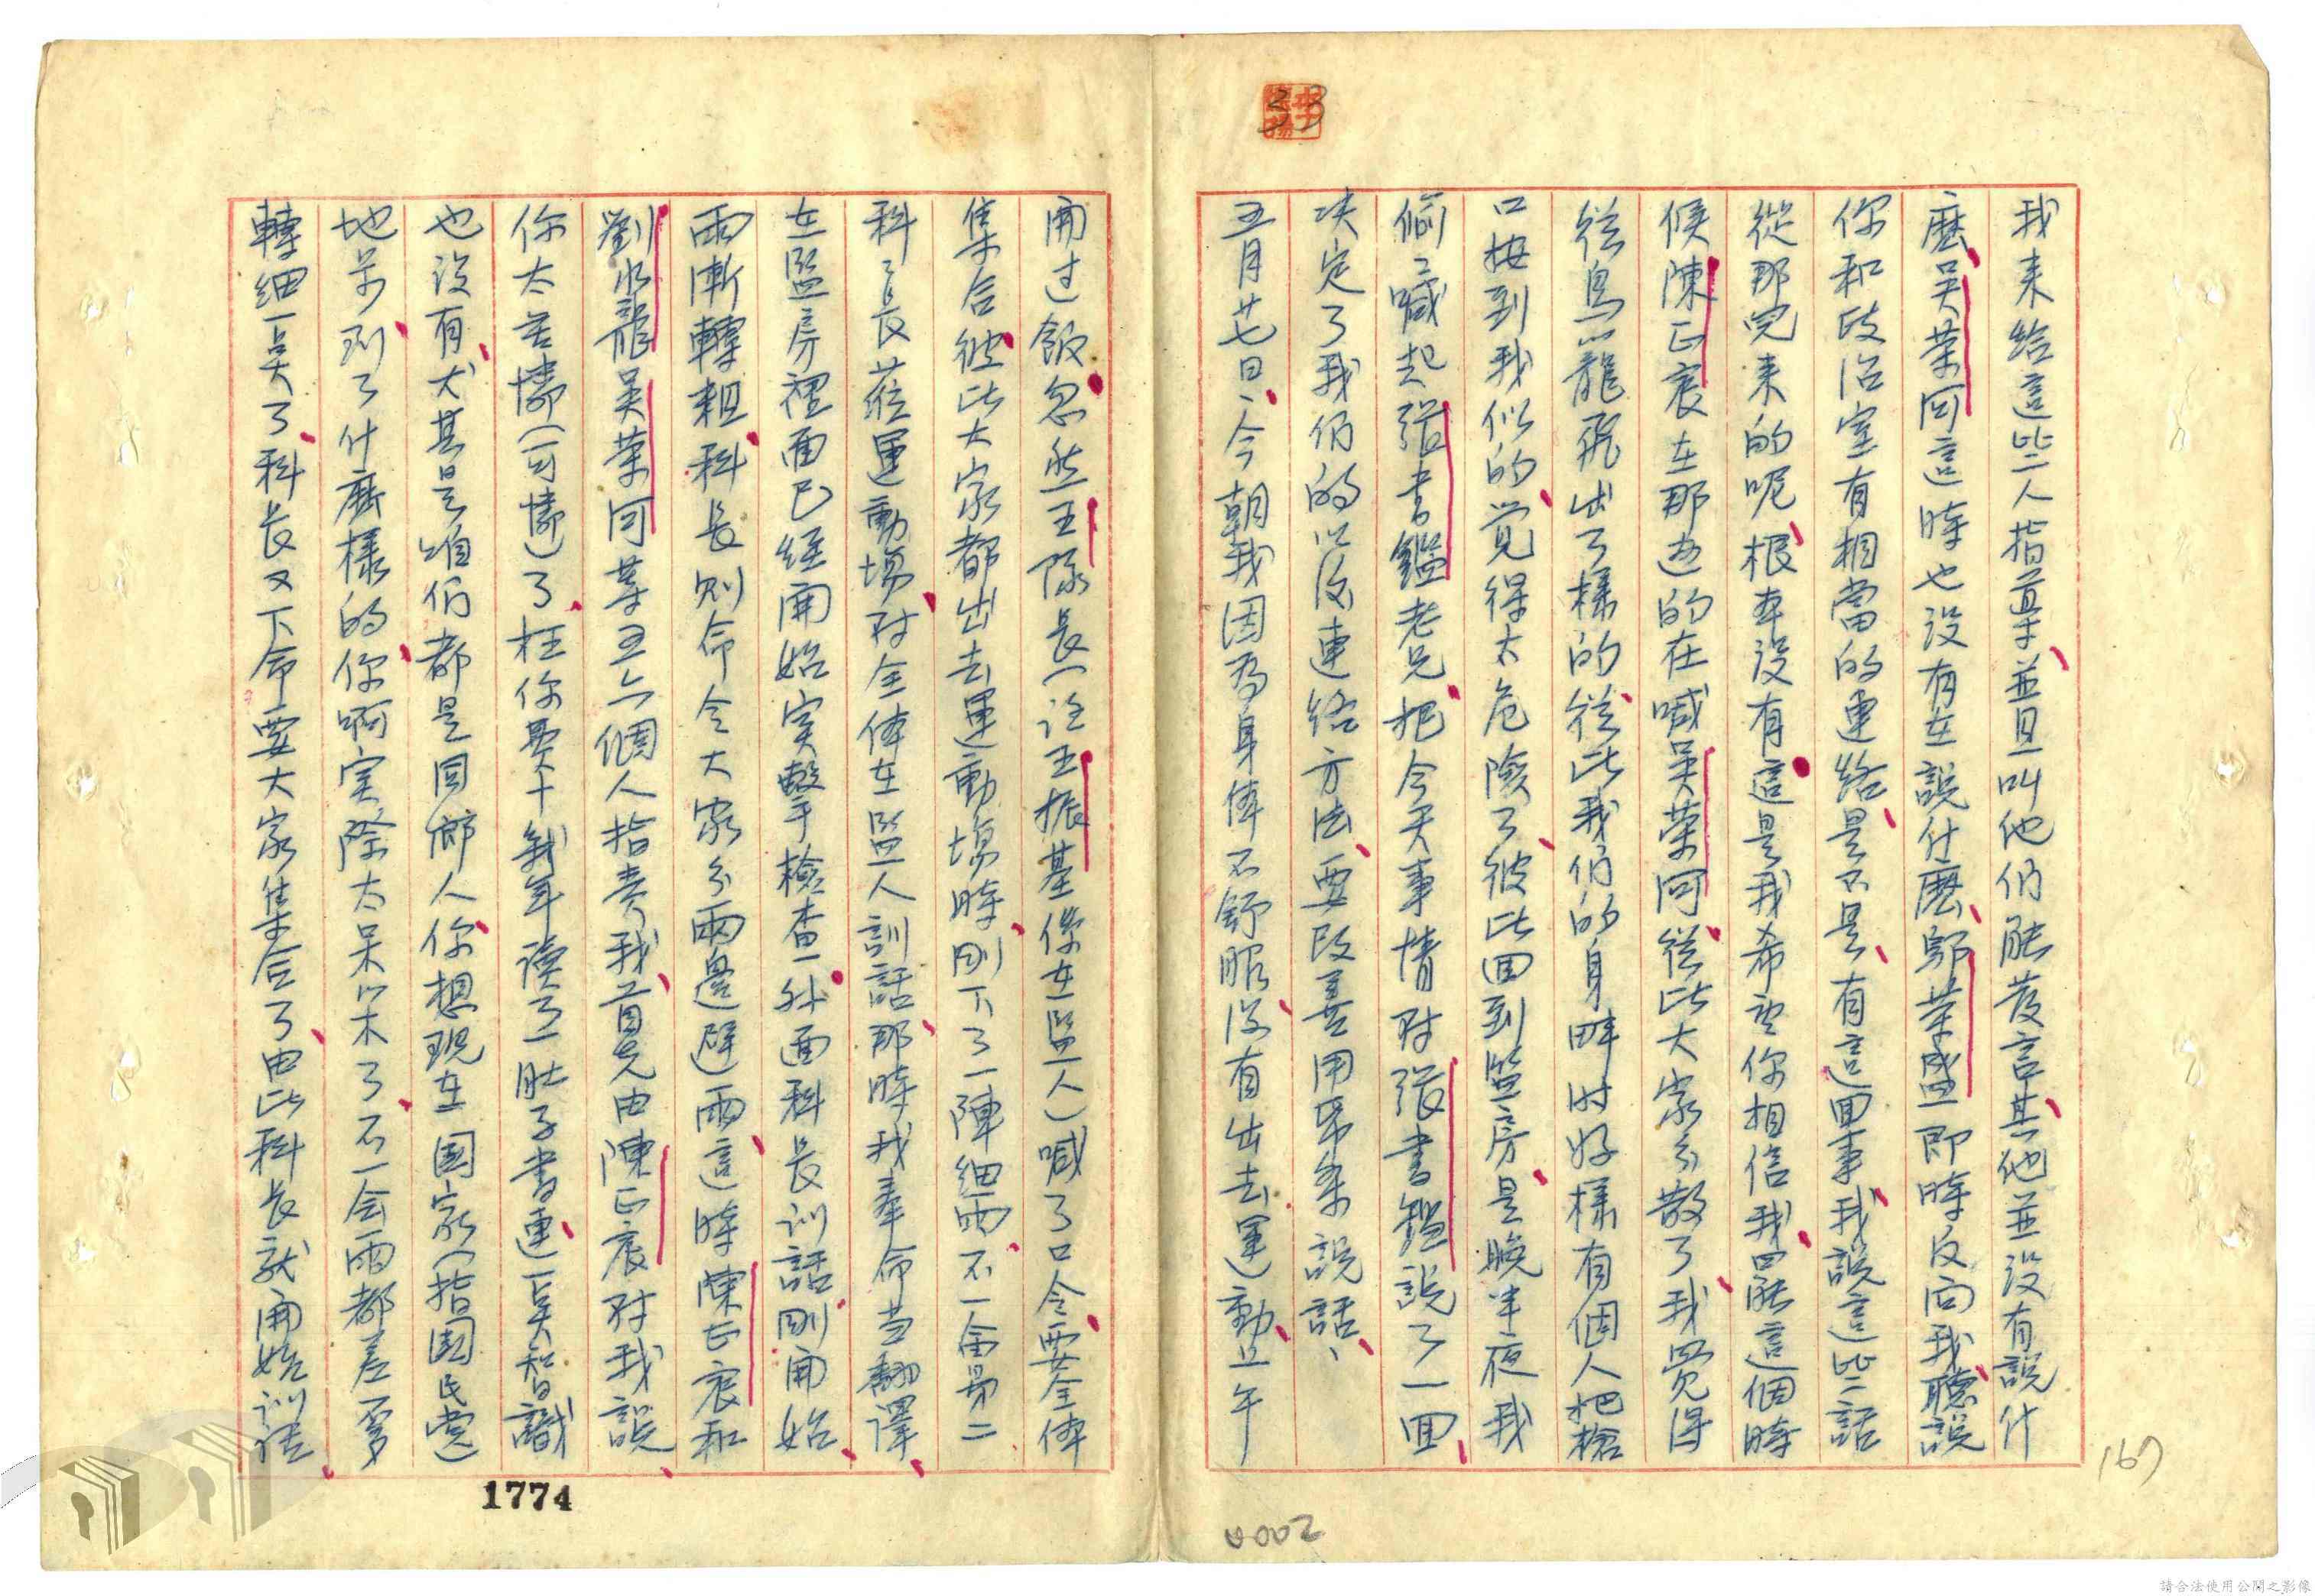 33
我来給這些人指導並且叫他們能發言其他並沒有說什
麼吳榮河這時也沒有在說什麼鄔榮盛即時反向我聽說
你和政治室有相當的連絡是不是有這回事我說這些話
從那兒来的呢根本沒有這是我希望你相信我只能這個時
候陳正宸在那边的在喊吳榮河從此大家分散了我覺得
從鳥籠飛出了樣的從此我們的身畔时好樣有個人把槍
口按到我似的覚得太危險了彼此回到監房是晚半夜我
偷々喊起張書鑑老兄把今天事情対張書鑑說了一回
决定了我们的以後連絡方法要改善用紙条說話
五月廿七日今朝我因為身体不舒服没有出去運動上午
開过飯忽然王隊長(註王振基係女監人)喊了口令要全体
集合彼此大家都出去運動場時剛下了一陣細雨不一會第二
科々長蒞運動場対全体在監人訓話那時我奉命当翻譯
在監房裡面已經開始实擊檢查外面科長训話剛開始
雨漸轉粗科長则命令大家分兩邊避雨這時陳正宸和
劉水龍吳榮河等五六個人指責我首先由陳正宸対我說
你太無情(可憐)了枉你費十幾年讀了一肚子書連一点智識
也没有尤其是咱们都是同鄉人你想現在国家(指國民党)
地步到了什麼樣的你啊实際太呆笨了不一会雨都差不多
轉細一点了科長又下命要大家集合了由此科長就開始训話
167
0002
1774
請合法使用公開之影像